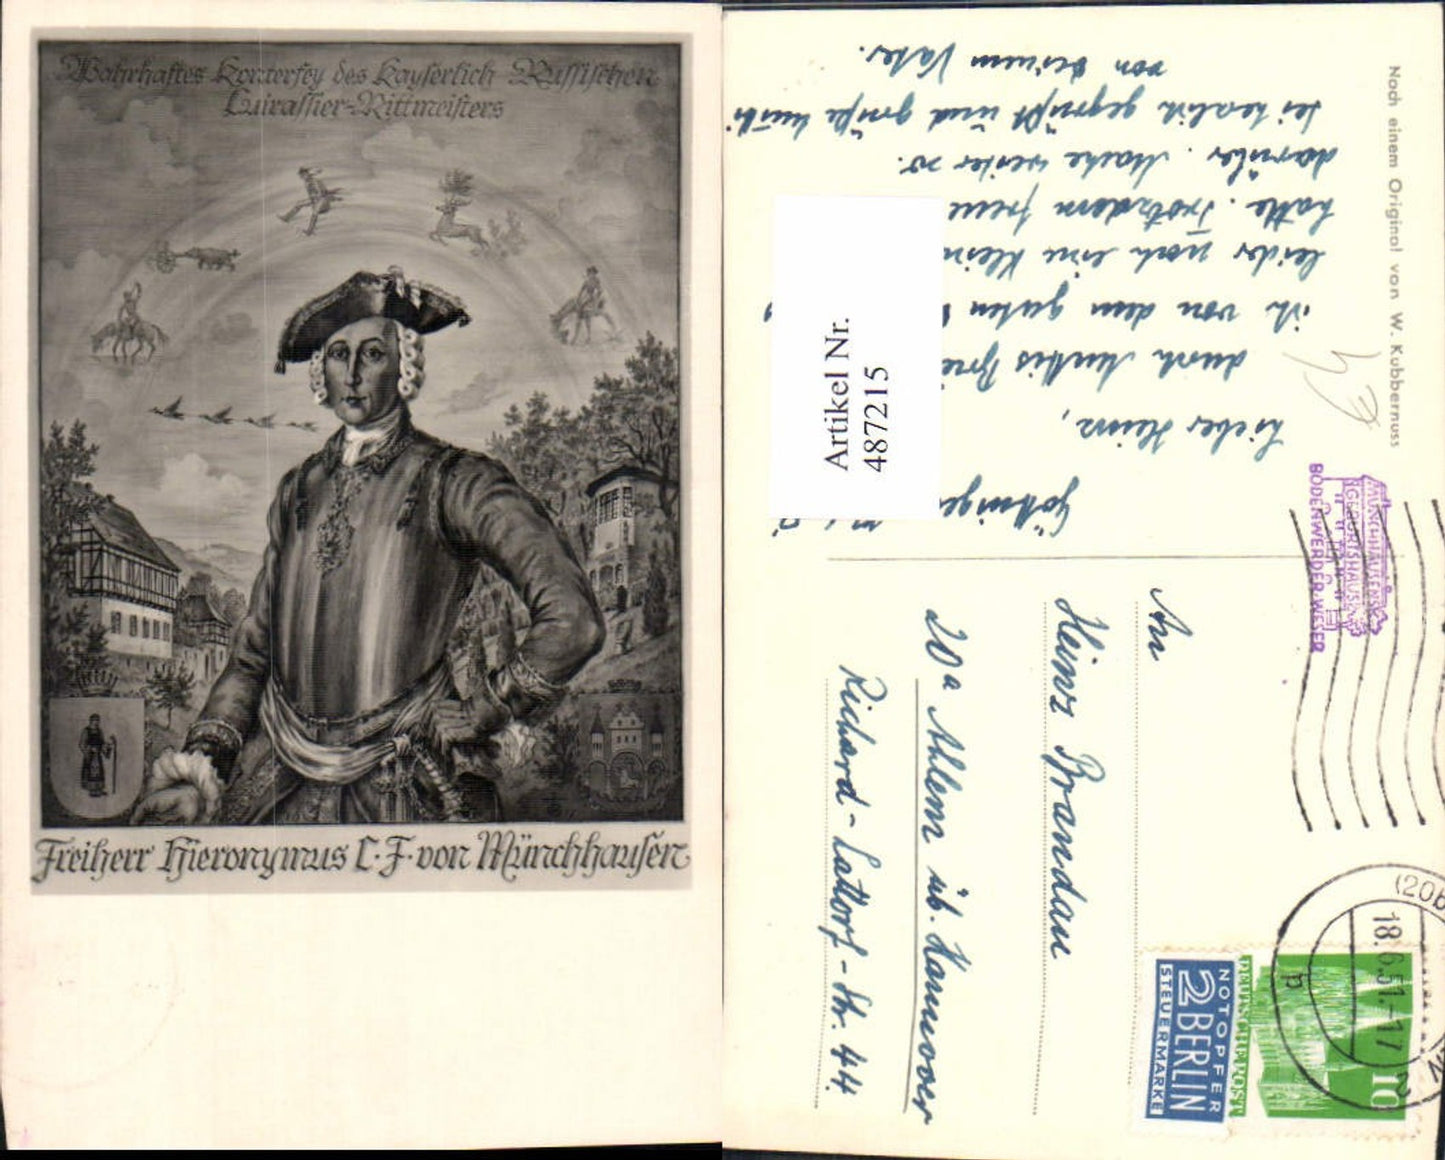 Wahrhaftes Konterfey des Kayserlich Russischen
Cuirassier-Rittmeisters
Freiherr Hieronymus C. F. von Münchhausen
Noch einem Original von W. Kubbernuss
Artikel Nr.
487215
Lieber Heinz,
durch Muttis
ich von dem guten
leider noch eine klein
hatte. Trotzdem freue
darüber. Mache weiter so.
Sei herzlich gegrüßt und grüße Mutti
von Deinem Vater.
MÜNCHHAUSENS
GEBURTSHAUS
BODENWERDER/WESER
An
Heinz Brandau
20a Ahlem üb. Hannover
Richard-Lattorf-Str. 44.
(20b
18.6.51.-17
b
2
NOTOPFER
2 BERLIN
STEUERMARKE
DEUTSCHE POST
10